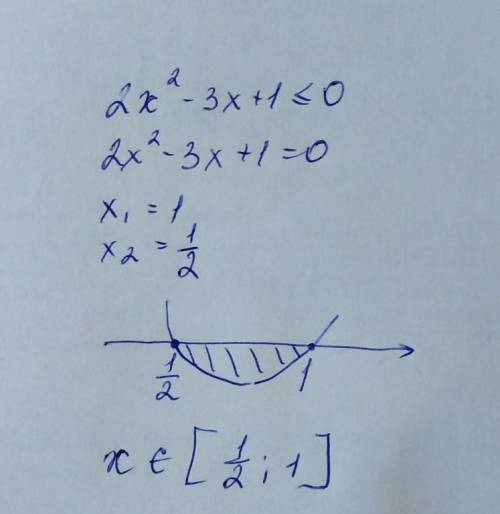 2x² - 3x + 1 ≤ 0
2x² - 3x + 1 = 0
x₁ = 1
x₂ = 1/2
1/2 1
x ∈ [1/2 ; 1]